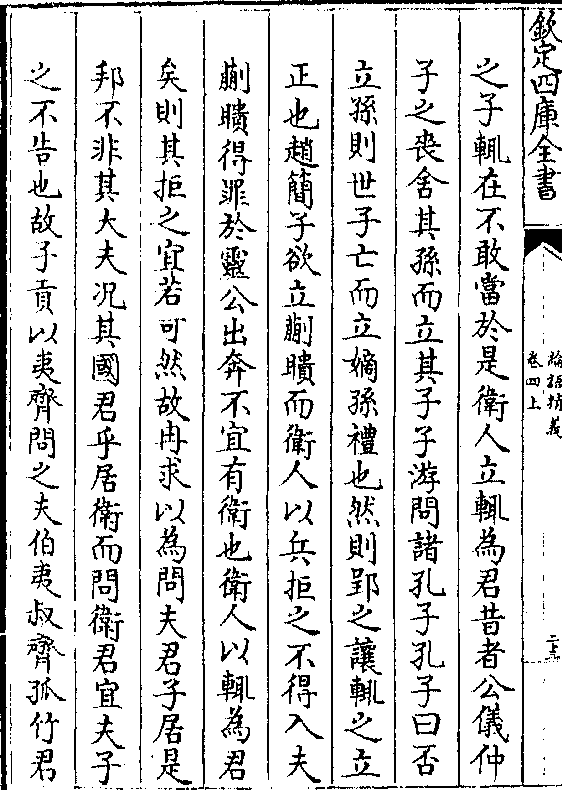 欽定四庫全書
論語精義
卷四上
之子輒在不敢當於是衛人立輒為君昔者公儀仲
子之喪舍其孫而立其子子游問諸孔子孔子曰否
立孫則世子亡而立嫡孫禮也然則郢之讓輒之立
正也趙簡子欲立蒯聵而衛人以兵拒之不得入夫
蒯聵得罪於靈公出奔不宜有衛也衛人以輒為君
矣則其拒之宜若可然故冉求以為問夫君子居是
邦不非其大夫况其國君乎居衛而問衛君宜夫子
之不告也故子貢以夷齊問之夫伯夷叔齊孤竹君